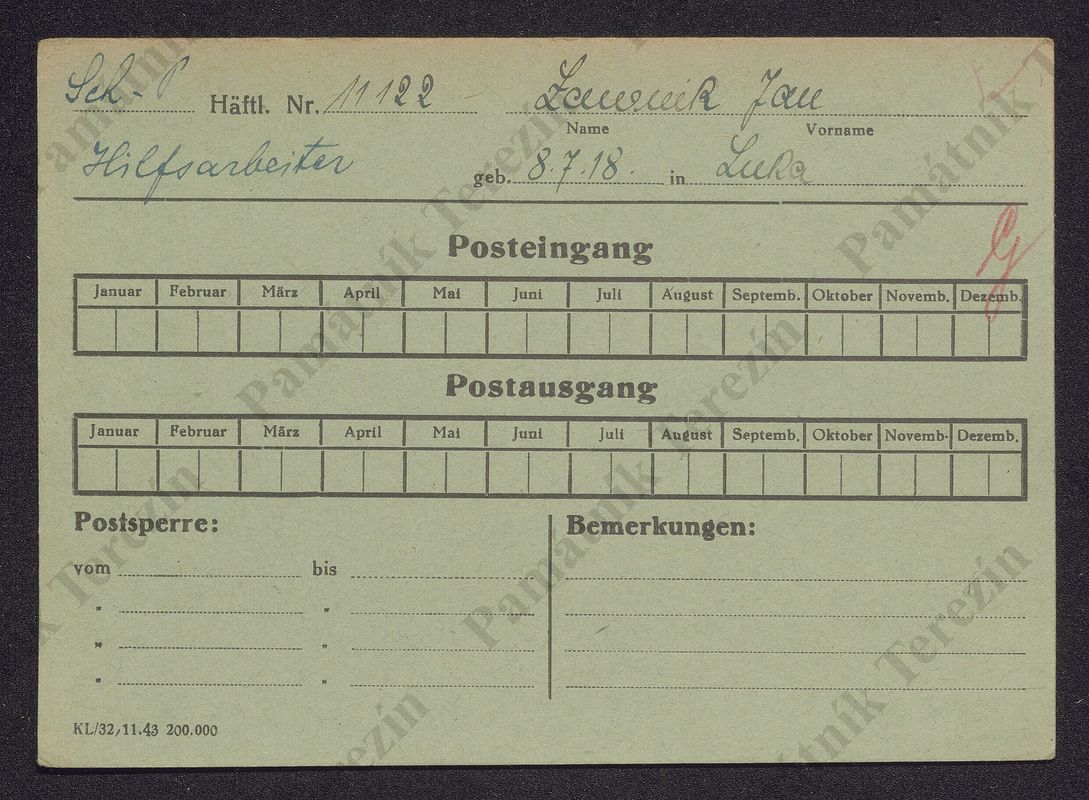 Sch. P Häftl. Nr. 11122 Jan
Name Vorname
Hilfsarbeiter geb. 8.7.18. in Luka
G
Posteingang
Januar Februar März April Mai Juni Juli August Septemb. Oktober Novemb. Dezemb.
Postausgang
Januar Februar März April Mai Juni Juli August Septemb. Oktober Novemb. Dezemb.
Postsperre: Bemerkungen:
vom bis
" "
" "
" "
KL/32, 11.43 200.000
Památník Terezín